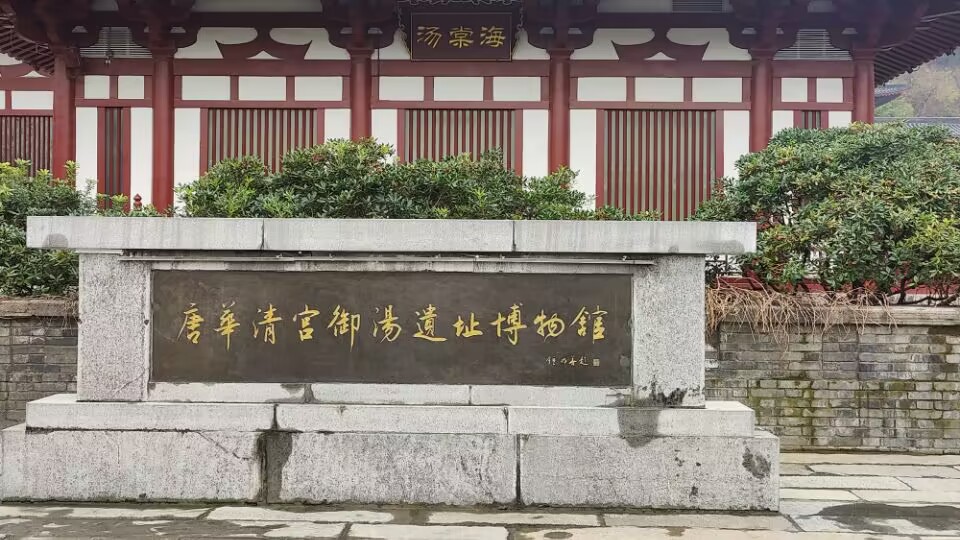 海棠汤
唐華清宫御湯遺址博物館